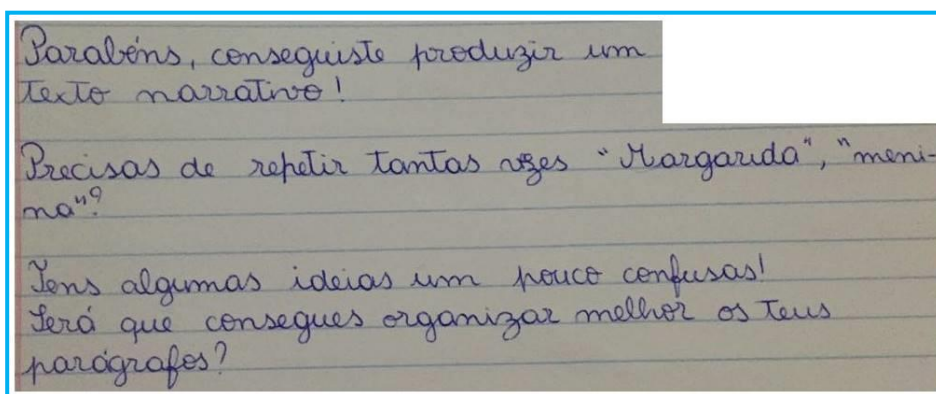 Parabéns, conseguiste produzir um
texto narrativo!
Precisas de repetir tantas vezes "Margarida", "meni-
na"?
Tens algumas ideias um pouco confusas!
Será que consegues organizar melhor os teus
parágrafos?